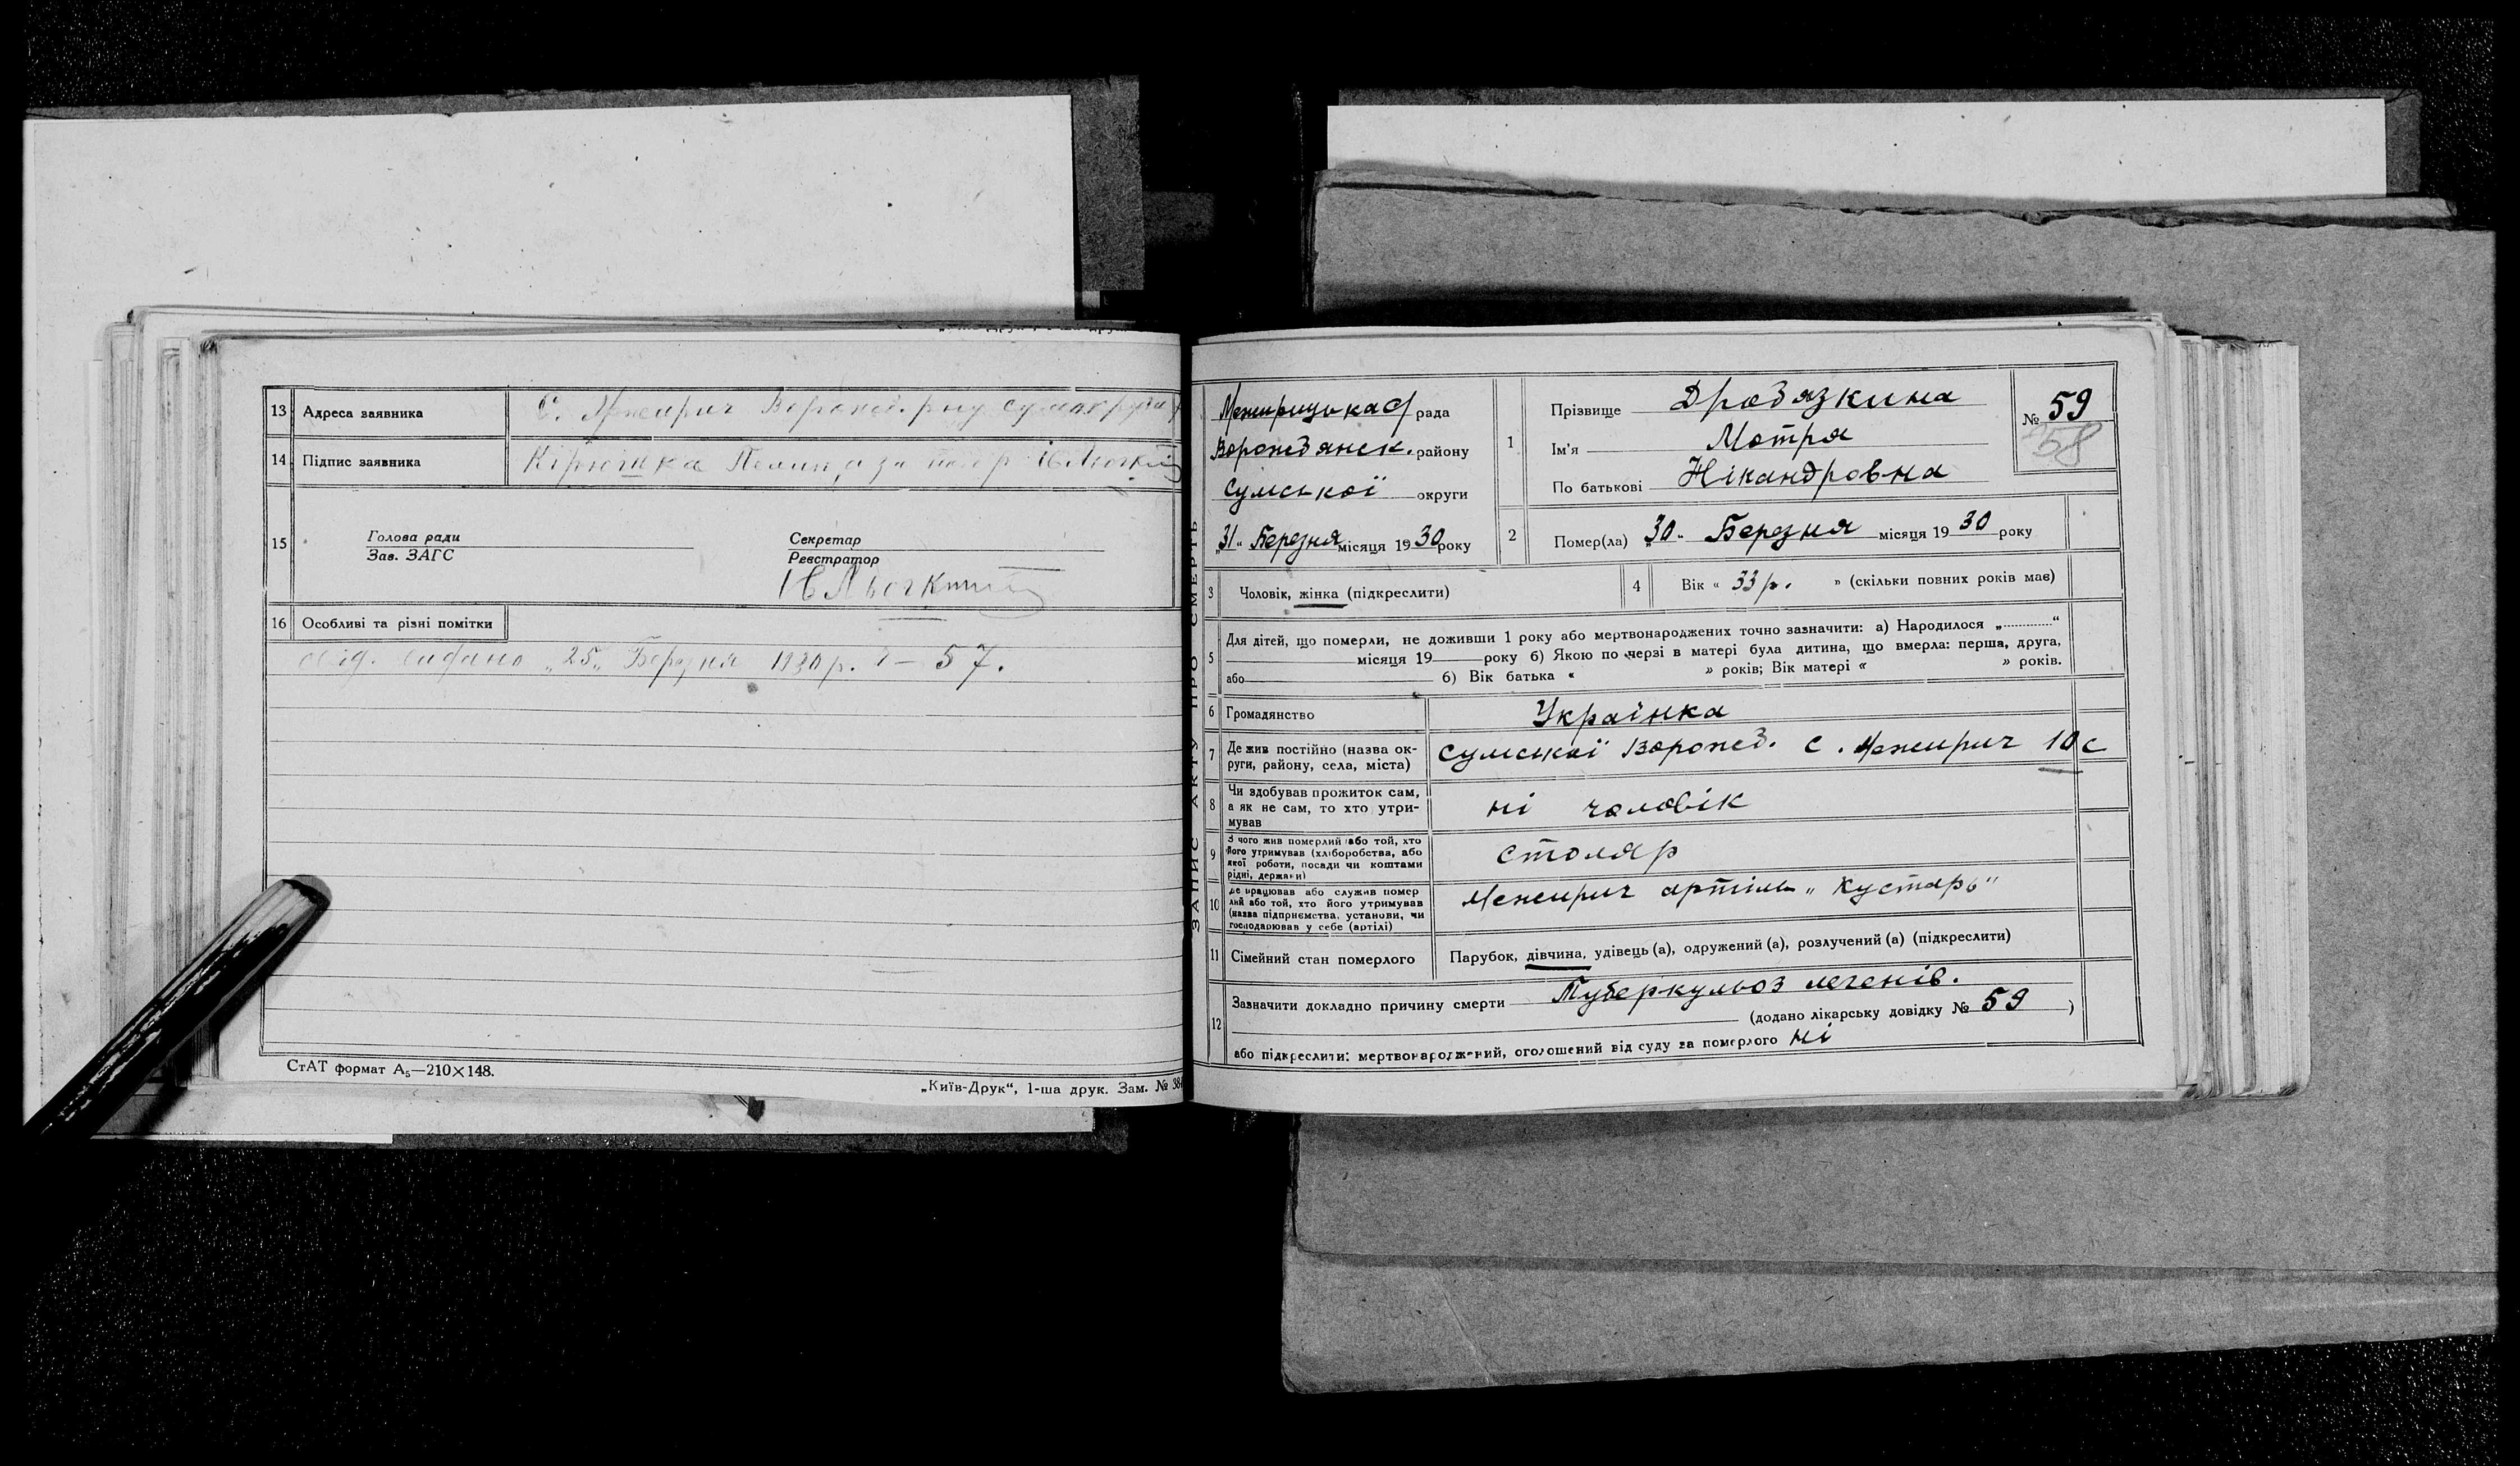 13 Адреса заявника С. МежиричВорожб. р-ну Сумокруги
14 Підпис заявника
15 Голова ради Секретар
Зав. ЗАГС Реєстратор
16 Особливі та різні помітки
свід. видано „25„ Березня 1930 р. 57.
СтАТ формат А₅—210×148.
„Київ-Друк“, 1-ша друк. Зам. № 38
ЗАПИС АКТУ ПРО СМЕРТЬ
Межирицька с/рада
Ворожбянск. району
Сумської округи
„31„ Березня місяця 1930 року
1 Прізвище Дробязкина
Ім'я Мотря
По батькові Нікандровна
№ 59
58
2 Помер(ла) „30„ Березня місяця 1930 року
3 Чоловік, жінка (підкреслити)
4 Вік « 33 р. » (скільки повних років має)
5 Для дітей, що померли, не доживши 1 року або мертвонароджених точно зазначити: а) Народилося „............“
місяця 19 року б) Якою по черзі в матері була дитина, що вмерла: перша, друга,
або б) Вік батька « » років; Вік матері « » років.
6 Громадянство Українка
7 Де жив постійно (назва ок-
руги, району, села, міста) Сумської Ворожб. с. Межирич 10 с
8 Чи здобував прожиток сам,
а як не сам, то хто утри-
мував ні чоловік
9 З чого жив померлий або той, хто
його утримував (хліборобства, або
якої роботи, посади чи коштами
рідні, держави) столяр
10 Де працював або служив помер
лий або той, хто його утримував
(назва підприємства, установи, чи
господарював у себе (артілі) Межирич артіль „Кустарь“
11 Сімейний стан померлого Парубок, дівчина, удівець (а), одружений (а), розлучений (а) (підкреслити)
12 Зазначити докладно причину смерти Туберкульоз легенів.
(додано лікарську довідку № 59 )
або підкреслити: мертвонароджений, оголошений від суду за померлого ні